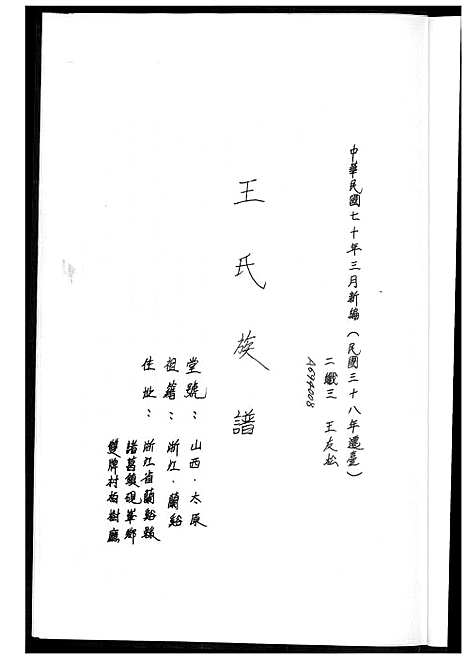 中華民國七十年三月新編(民國三十八年遷臺)
二鐵三 王友松
A6944008
王氏族譜
堂號:山西.太原
祖籍:浙江.蘭谿
住址:浙江省蘭谿縣
諸葛鎮硯峯鄉
雙牌村柏樹廳